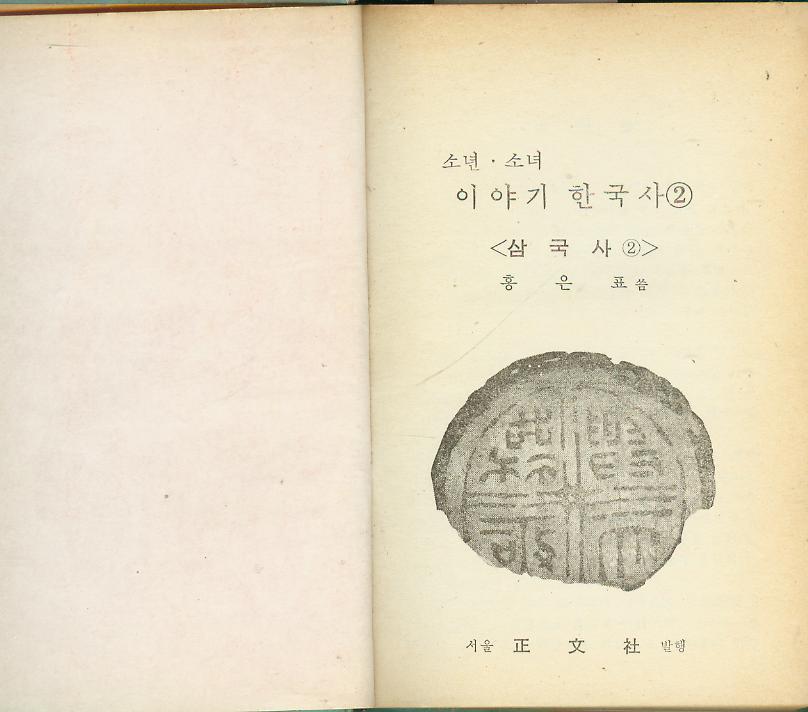 소년·소녀
이야기 한국사②
<삼국사②>
홍은표 씀
서울 正文社 발행